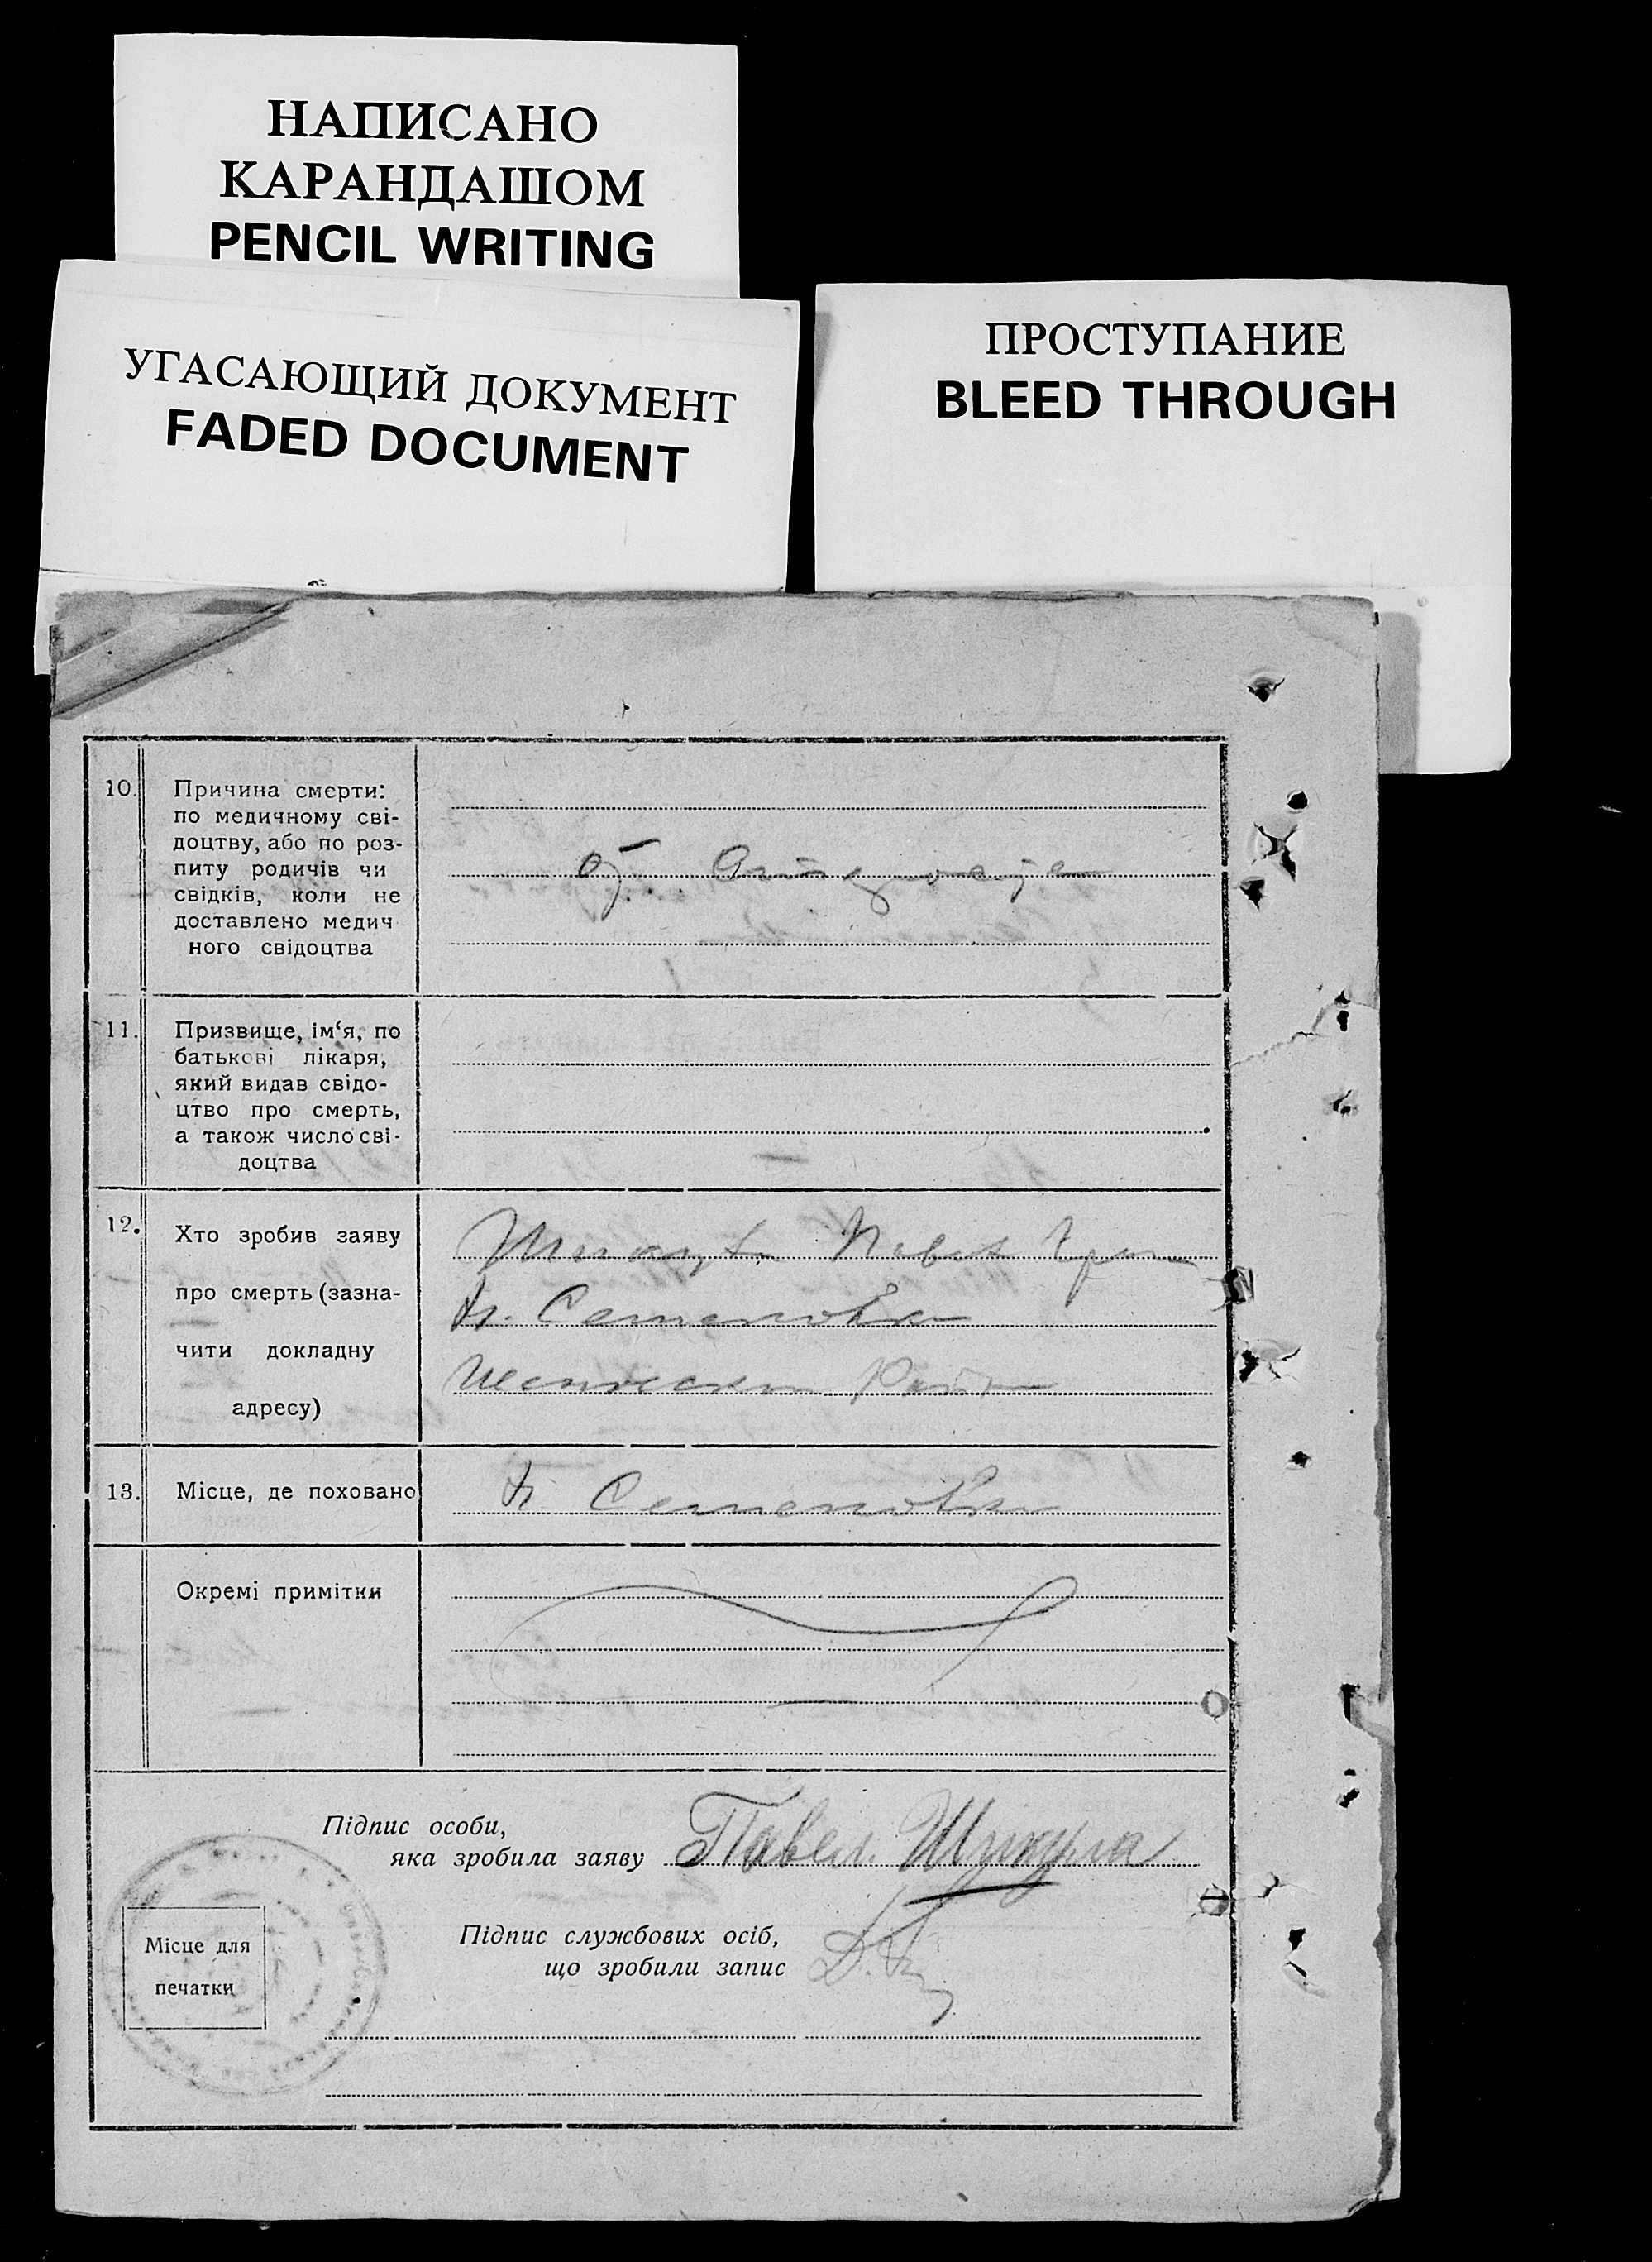 НАПИСАНО
КАРАНДАШОМ
PENCIL WRITING
УГАСАЮЩИЙ ДОКУМЕНТ
FADED DOCUMENT
ПРОСТУПАНИЕ
BLEED THROUGH
10.
Причина смерти:
по медичному сві-
доцтву, або по роз-
питу родичів чи
свідків, коли не
доставлено медич
ного свідоцтва
от
11.
Призвище, ім‘я, по
батькові лікаря,
який видав свідо-
цтво про смерть,
а також число сві-
доцтва
12.
Хто зробив заяву
про смерть (зазна-
чити докладну
адресу)
Павел
Семеновка
13.
Місце, де поховано
Семеновка
Окремі примітки
Підпис особи,
яка зробила заяву Павел Шукула
Підпис службових осіб,
що зробили запис
Місце для
печатки